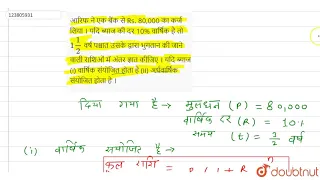 123805931
आरिफ ने एक बैंक से Rs. 80,000 का कर्ज
लिया । यदि ब्याज की दर 10% वार्षिक है तो
1 1/2 वर्ष पश्चात उसके द्वारा भुगतान की जाने
वाली राशियों में अंतर ज्ञात कीजिए । यदि ब्याज
(i) वार्षिक संयोजित होता हैं (ii) अर्धवार्षिक
संयोजित होता है ।
दिया गया है → मूलधन (P) = 80,000
वार्षिक दर (R) = 10%
समय (t) = 3/2 वर्ष
(i) वार्षिक संयोजित है →
कुल राशि =
doubtnut